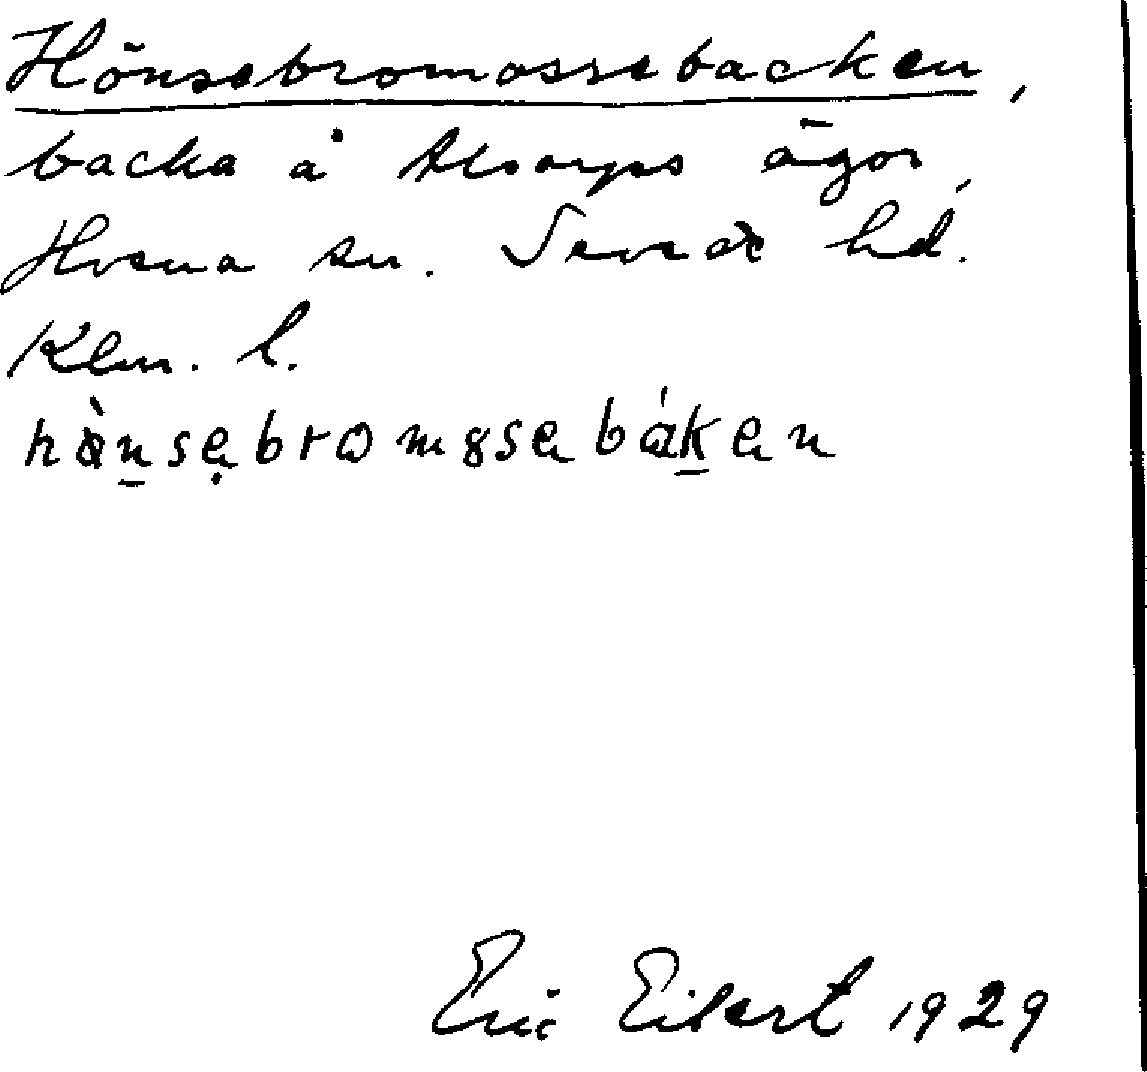 Hönsebromossebacken,
backa å Alsarps ägor,
Hvena sn. Sevede hd.
Klm. l.
hȍnsebromȣsebáken
Eric Eilert 1929